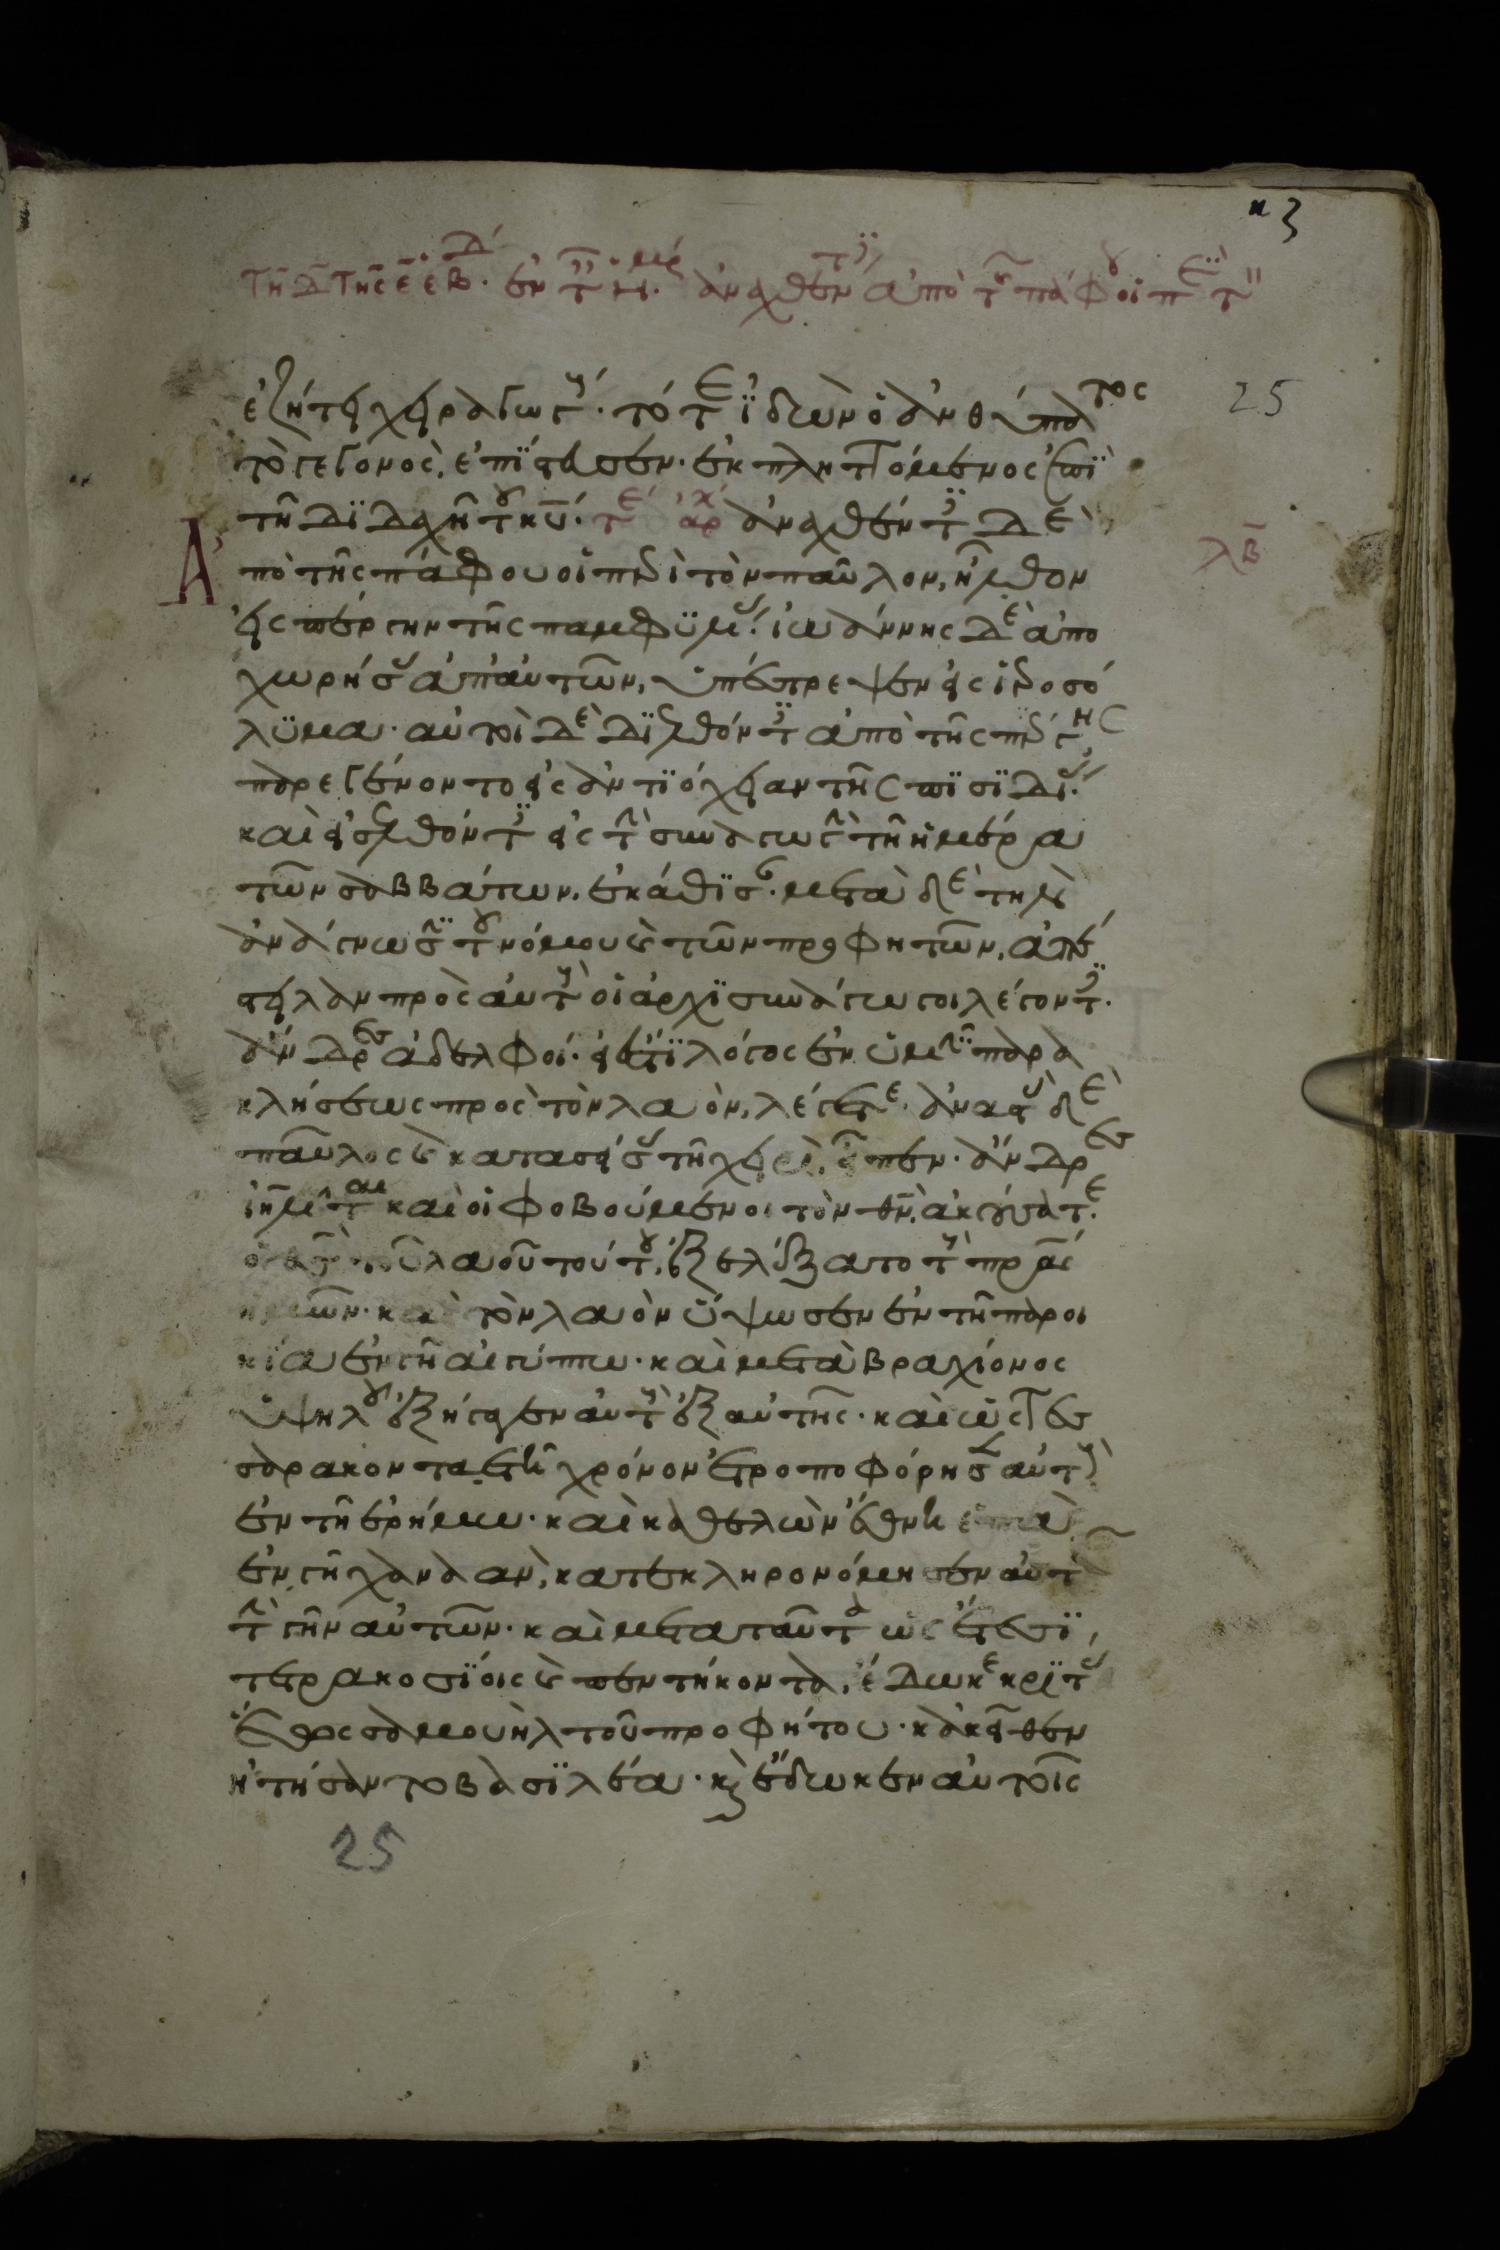 κζ
τῆ δ̄ τῆς ε̄ ε β δ. ἐν τ ἡμερ. ἀναχθέν τ ἀπὸ τ πάφου οἱ π τ
25
ἐζήτει χειραγωγ· τότε ἰδὼν ὁ ἀνθύπατος
τὸ γεγονὸς, ἐπίστευσεν· ἐκπληττόμενος ἐπὶ
τῆ διδαχῆ τοῦ κ̄υ· τέ ἀρχ ἀναχθέντες δὲ
λβ
Ἀπὸ τῆς πάφου οἱ περὶ τὸν παῦλον, ἦλθον
εἰς πέργην τῆς παμφυλίας· ἰωάννης δὲ ἀπο
χωρήσας ἀπ' αὐτῶν, ὑπέστρεψεν εἰς ἱεροσό
λυμα· αὐτοὶ δὲ διελθόντες ἀπὸ τῆς πέργης
παρεγένοντο εἰς ἀντιόχειαν τῆς πισιδίας·
καὶ εἰσελθόντες εἰς τὴν συναγωγὴν τῆ ἡμέρα
τῶν σαββάτων, ἐκάθισαν· μετὰ δὲ τὴν
ἀνάγνωσιν τοῦ νόμου καὶ τῶν προφητῶν, ἀπέ
στειλαν πρὸς αὐτοὺς οἱ ἀρχισυνάγωγοι λέγοντες·
ἄνδρες ἀδελφοί· εἰ ἔστι λόγος ἐν ὑμῖν παρα
κλήσεως πρὸς τὸν λαὸν, λέγετε· ἀναστὰς δὲ
παῦλος καὶ κατασείσας τῆ χειρὶ, εἶπεν· ἄνδρες
ἰηλῖται καὶ οἱ φοβούμενοι τὸν θ̄ν, ἀκούσατε·
ὁ θ̄ς τοῦ λαοῦ τούτου, ἐξελέξατο τοὺς πρ̄ας
ἡμῶν· καὶ τὸν λαὸν ὕψωσεν ἐν τῆ παροι
κία ἐν γῆ αἰγύπτω· καὶ μετὰ βραχίονος
ὑψηλοῦ ἐξήγαγεν αὐτοὺς ἐξ αὐτῆς· καὶ ὡς τεσ
σαρακονταετῆ χρόνον ἐτροποφόρησεν αὐτοὺς
ἐν τῆ ἐρήμω· καὶ καθελὼν ἔθνη ἑπτὰ
ἐν γῆ χαναὰν, κατεκληρονόμησεν αὐτοῖς
τὴν γῆν αὐτῶν· καὶ μετὰ ταῦτα ὡς ἔτεσι
τετρακοσίοις καὶ πεντήκοντα, ἔδωκε κριτὰς
ἕως σαμουὴλ τοῦ προφήτου· κἀκεῖθεν
ἠτήσαντο βασιλέα· καὶ ἔδωκεν αὐτοῖς
25